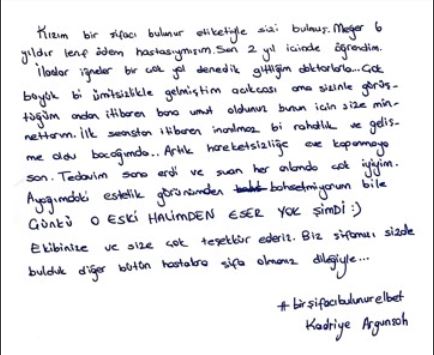 Kızım bir şifacı bulunur etiketiyle sizi bulmuş. Meğer 6
yıldır lenf ödem hastasıymışım. Son 2 yıl içinde öğrendim.
İlaçlar iğneler bir çok yol denedik gittiğim doktorlarla... Çok
büyük bi ümitsizlikle gelmiştim açıkcası ama sizinle görüş-
tüğüm andan itibaren bana umut oldunuz bunun için size min-
nettarım. İlk seanstan itibaren inanılmaz bi rahatlık ve geliş-
me oldu bacağımda.. Artık hareketsizliğe eve kapanmaya
son. Tedavim sona erdi ve şuan her anlamda çok iyiyim.
Ayağımdaki estetik görünümden bahsetmiyorum bile
Çünkü O ESKİ HALİMDEN ESER YOK ŞİMDİ :)
Ekibinize ve size çok teşekkür ederiz. Biz şifamızı sizde
bulduk diğer bütün hastalara şifa olmanız dileğiyle...
#birşifacıbulunurelbet
Kadriye Argunşah